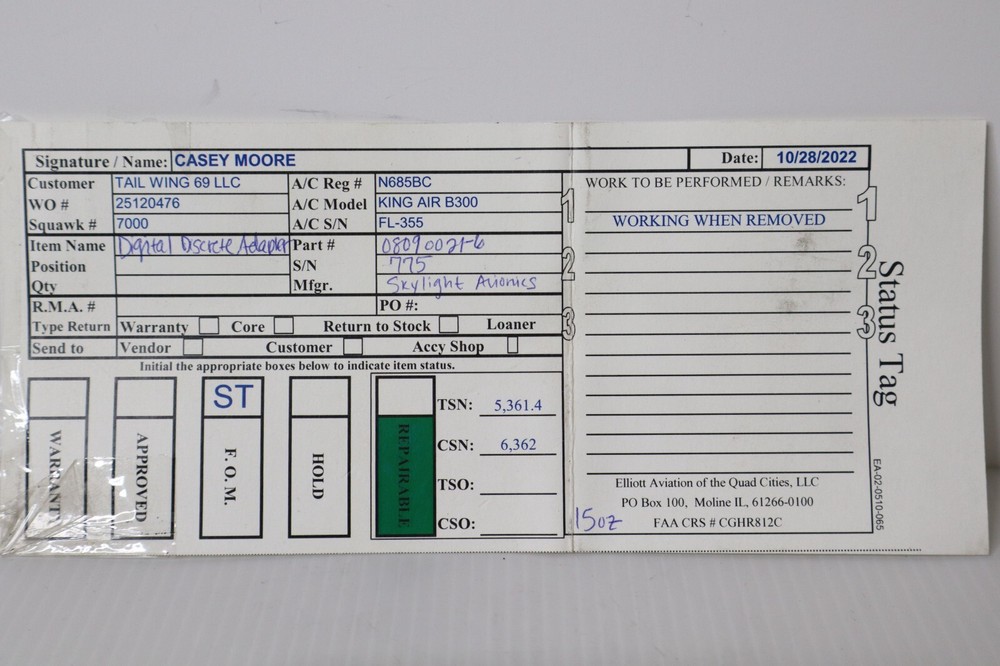 Signature / Name: CASEY MOORE Date: 10/28/2022
Customer TAIL WING 69 LLC A/C Reg # N685BC
WO # 25120476 A/C Model KING AIR B300
Squawk # 7000 A/C S/N FL-355
Item Name Digital Discrete Adapter Part # 08090021-6
Position S/N 775
Qty Mfgr. Skylight Avionics
R.M.A. # PO #:
Type Return Warranty Core Return to Stock Loaner
Send to Vendor Customer Accy Shop
Initial the appropriate boxes below to indicate item status.
WARRANTY
APPROVED
ST
F. O. M.
HOLD
REPAIRABLE
TSN: 5,361.4
CSN: 6,362
TSO:
CSO:
1
2
3
WORK TO BE PERFORMED / REMARKS:
WORKING WHEN REMOVED
1
2
3
Status Tag
EA-02-0510-065
Elliott Aviation of the Quad Cities, LLC
PO Box 100, Moline IL, 61266-0100
15oz FAA CRS # CGHR812C